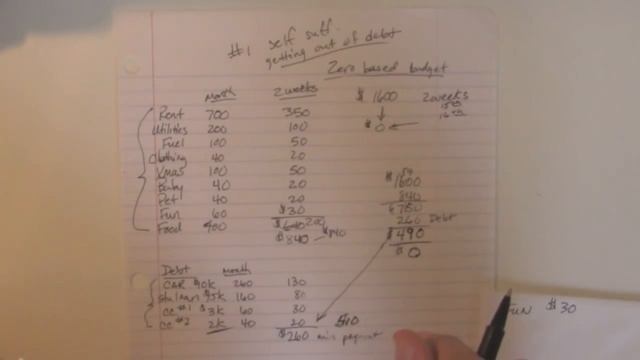 #1 self suff.
getting out of debt
Zero based budget
Month 2 weeks
Rent 700 350
Utilities 200 100
Fuel 100 50
Clothing 40 20
Xmas 100 50
Baby 40 20
Pet 40 20
Fun 60 $30
Food 400 200
$640
$840
$1600 2 weeks
$0
$1600
840
260 Debt
$490
0
Debt Month
CAR 260 130
160 80
cc #1 $3k 60 30
cc #2 2k 40 20
$260 min payment
Fun $30